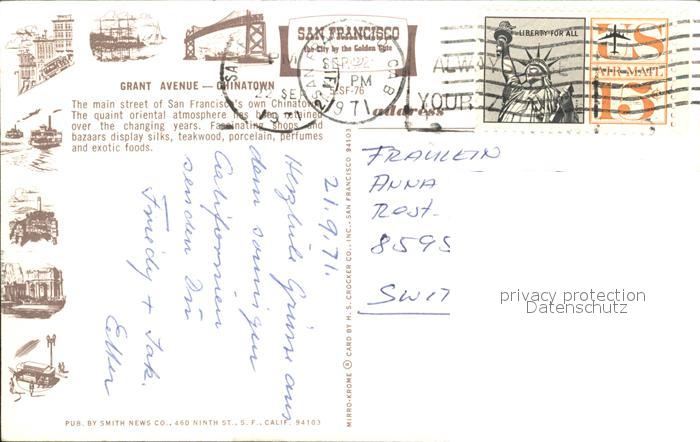 SAN FRANCISCO
the City by the Golden Gate
GRANT AVENUE — CHINATOWN
SF-76
The main street of San Francisco's own Chinatown.
The quaint oriental atmosphere has been retained
over the changing years. Fascinating shops and
bazaars display silks, teakwood, porcelain, perfumes
and exotic foods.
address
LIBERTY FOR ALL
US
AIR MAIL
13
PM
SEP 22
PM
1971
22 SEP
ALWAYS USE
YOUR ZIP
21.9.71.
Herzliche Grüsse aus
dem sonnigen
Californien
senden Dir
Friedy + Jak.
Etter
FRÄULEIN
ANNA
8595
privacy protection
Datenschutz
MIRRO-KROME ® CARD BY H. S. CROCKER CO., INC., SAN FRANCISCO 94103
PUB. BY SMITH NEWS CO., 460 NINTH ST., S. F., CALIF. 94103